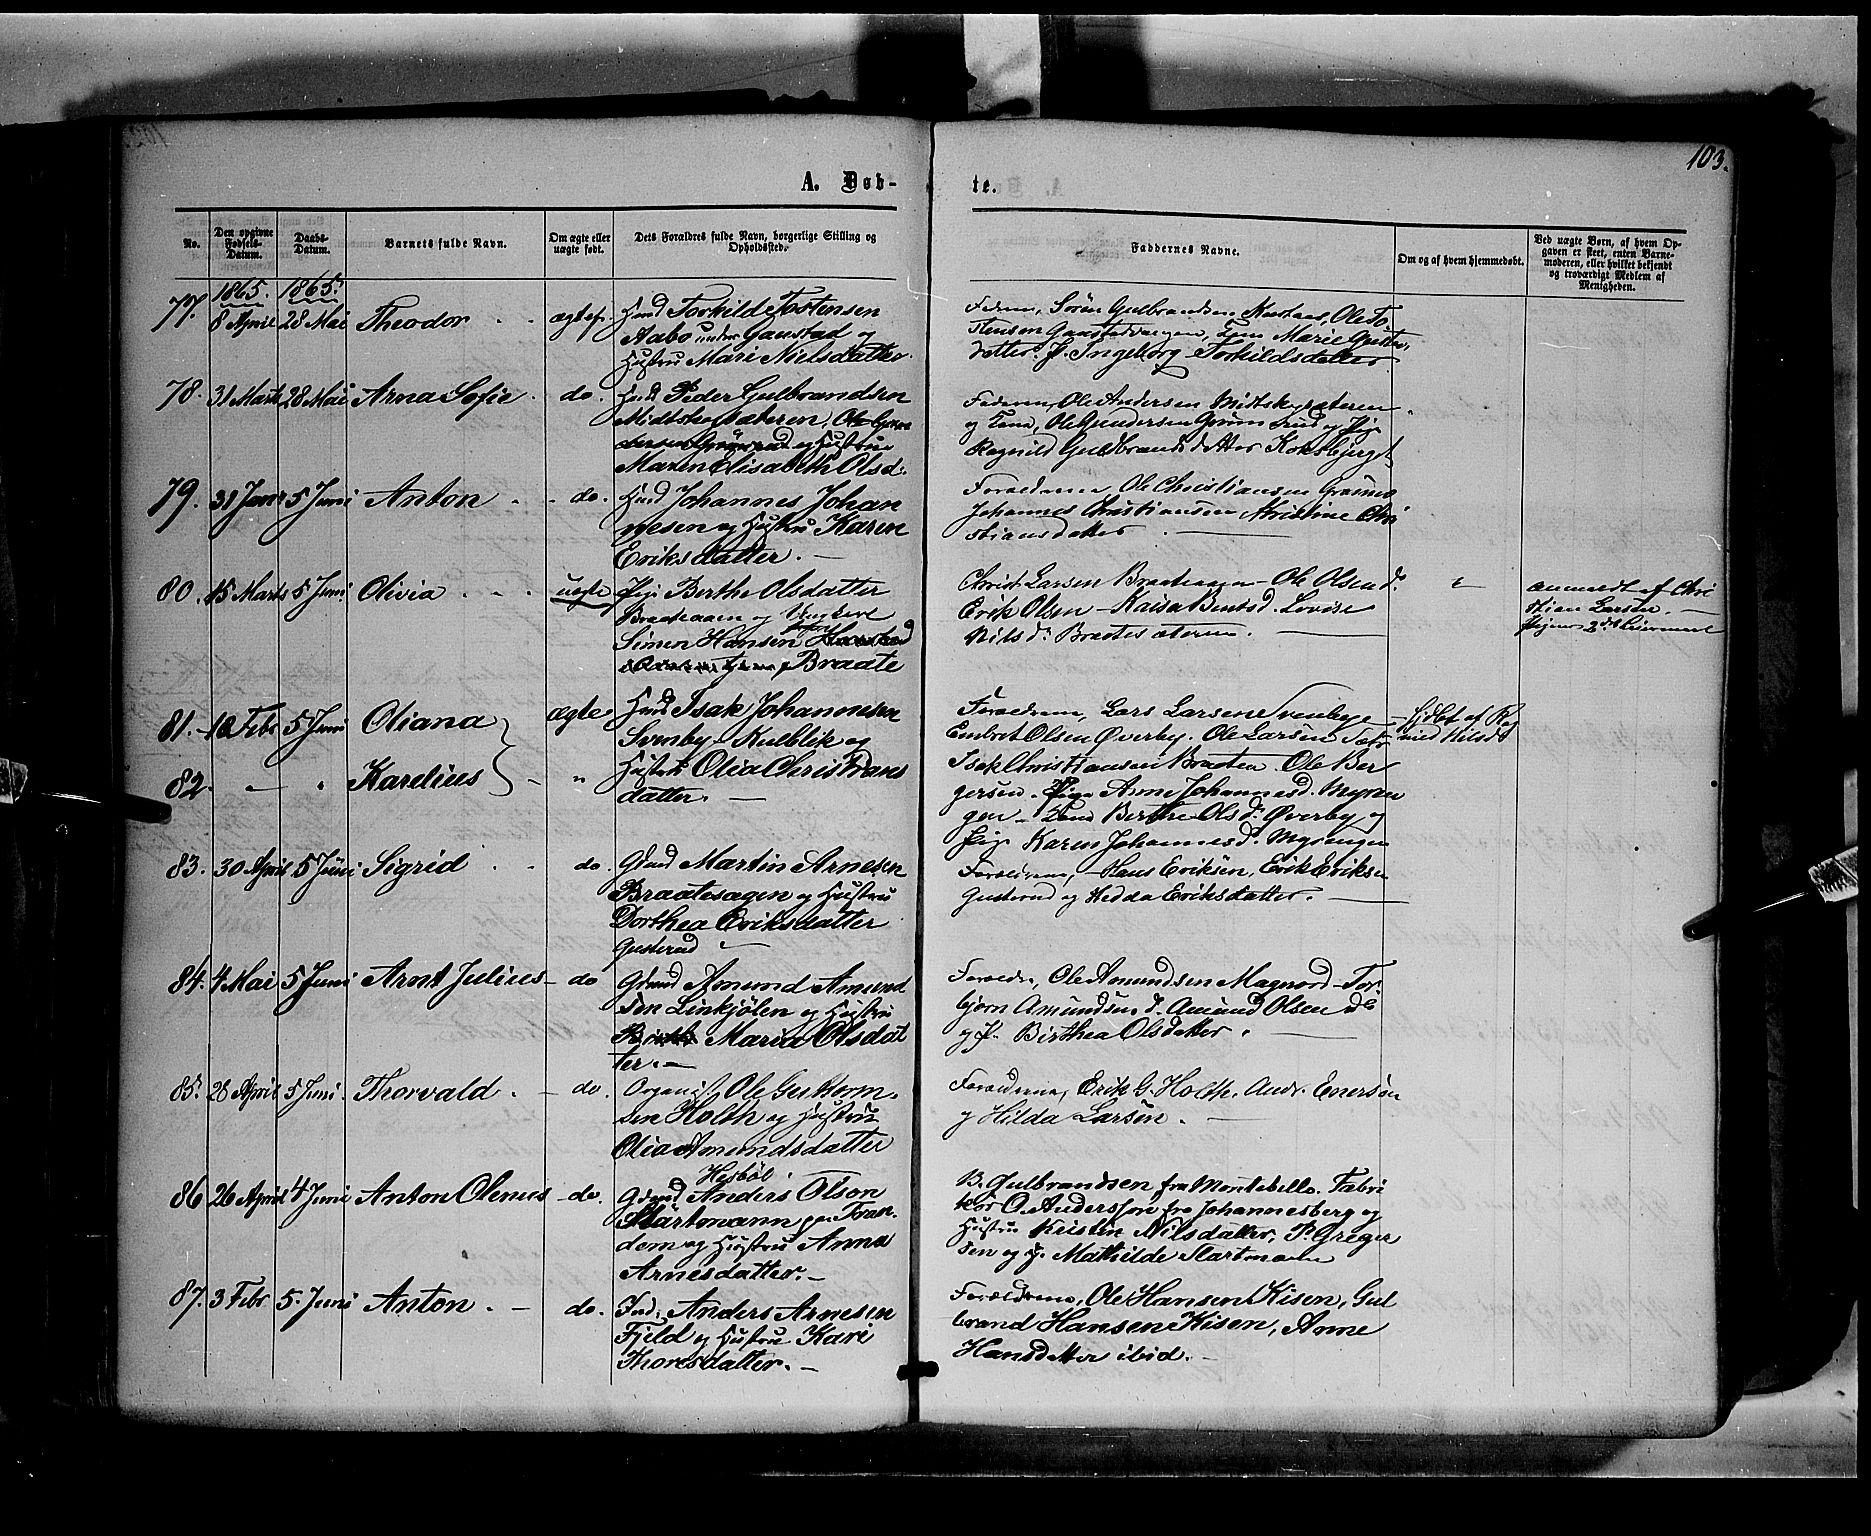 103.
A. Døb-
te.
No.
Den opgivne Fødsels-Datum.
Daabs-Datum.
Barnets fulde Navn.
Om ægte eller uægte født.
Dets Forældres fulde Navn, borgerlige Stilling og Opholdssted.
Faddernes Navne.
Om og af hvem hjemmedøbt.
Ved uægte Børn, af hvem Op-
gaven er skeet, enten Barne-
moderen, eller hvilket bekjendt
og troværdigt Medlem af
Menigheden.
1865. 1865.
77. 8 April 28 Mai Theodor ægtef. Husd Torkilde Tostensen
Aabo under Gaustad og
Hustru Mari Nielsdatter.
Faderen, Sören Gulbrandsen, Ole To
stensen Marie
datter. P. Ingeborg Torkildsdatter
78. 31 Marts 28 Mai Arna Sofie do. Peder Gulbrandsen
og Hustru
Maren Elisabeth Olsd.
Faderen, Ole Andersen Midtskogsæteren
og Kone, Ole Gundersen og Pige
Ragnild Gulbrandsdatter
79. 31 Janr 5 Juni Anton do. Husd Johannes Johan
nesen og Hustru Karen
Eriksdatter.
Forældrene, Ole Christiansen
Johannes Christiansen, Kristine Chri
stiansdatter
80. 15 Marts 5 Juni Olivia uegte Pige Berthe Olsdatter
Braateaaen og Ungkarl
Simen Hansen
Braate
Christ. Larsen Braateaaen - Ole Olsen do
Erik Olsen - Kaisa Bentsd. Lovise
Nilsd. Braatesæteren.
anmeldt af Chri
stian Larsen.
Pigens 2det Leiermaal
81. 18 Febr 5 Juni Oliana ægte Husd Isak Johannesen
Svenby Kulblik og
82. Karelius Hustru Olia Christians
datter.
Forældrene, Lars Larsen Svenbye
Embret Olsen Øverby. Ole Larsen
Isak Christiansen Braaten. Ole Ber
gersen. Pige Anne Johannesd. Myren
gen - Kone Berthe Olsd. Øverby og
Pige Karen Johannesd. Myrengen
hjdbt af Rag
nild Nilsd
83. 30 April 5 Juni Sigrid do. Grbd Martin Arnesen
Braatesagen og Hustru
Dorthea Eriksdatter
Gusterud
Forældrene, Hans Eriksen, Erik Eriksen
Gusterud og Hedda Eriksdatter.
84. 4 Mai 5 Juni Arnt Julius do Grbrd Amund Amund
sen Linkjølen og Hustru
Maria Olsdat
ter.
Forældre, Ole Amundsen Magnord - Tor
bjørn Amundsen d. Amund Olsen do
og P. Birthea Olsdatter.
85. 28 April 5 Juni Thorvald do. Organist Ole Guttorm
sen Holth og Hustru
Olia Amundsdatter
Forældrene, Erik G. Holth, Andr. Enersen
og Hilda Larsen.
86 26 April 4 Juni Anton Olenus do. Hesbøl
Grbrd Anders Olson
Slartmann paa Tran-
dem og Hustru Anna
Arnesdatter.
B. Gulbrandsen fra Montebello. Fabri
kör O. Andersson fra Johannesberg og
Hustru Kristin Nilsdatter, P. Greger
sen og P. Mathilde Slartmann
87. 3 Febr 5. Juni Anton do. Anders Arnesen
Fjeld og Hustru Kari
Thoresdatter.
Forældrene, Ole Hansen Kisen, Gul
brand Hansen Kisen, Anne
Hansdatter ibid.